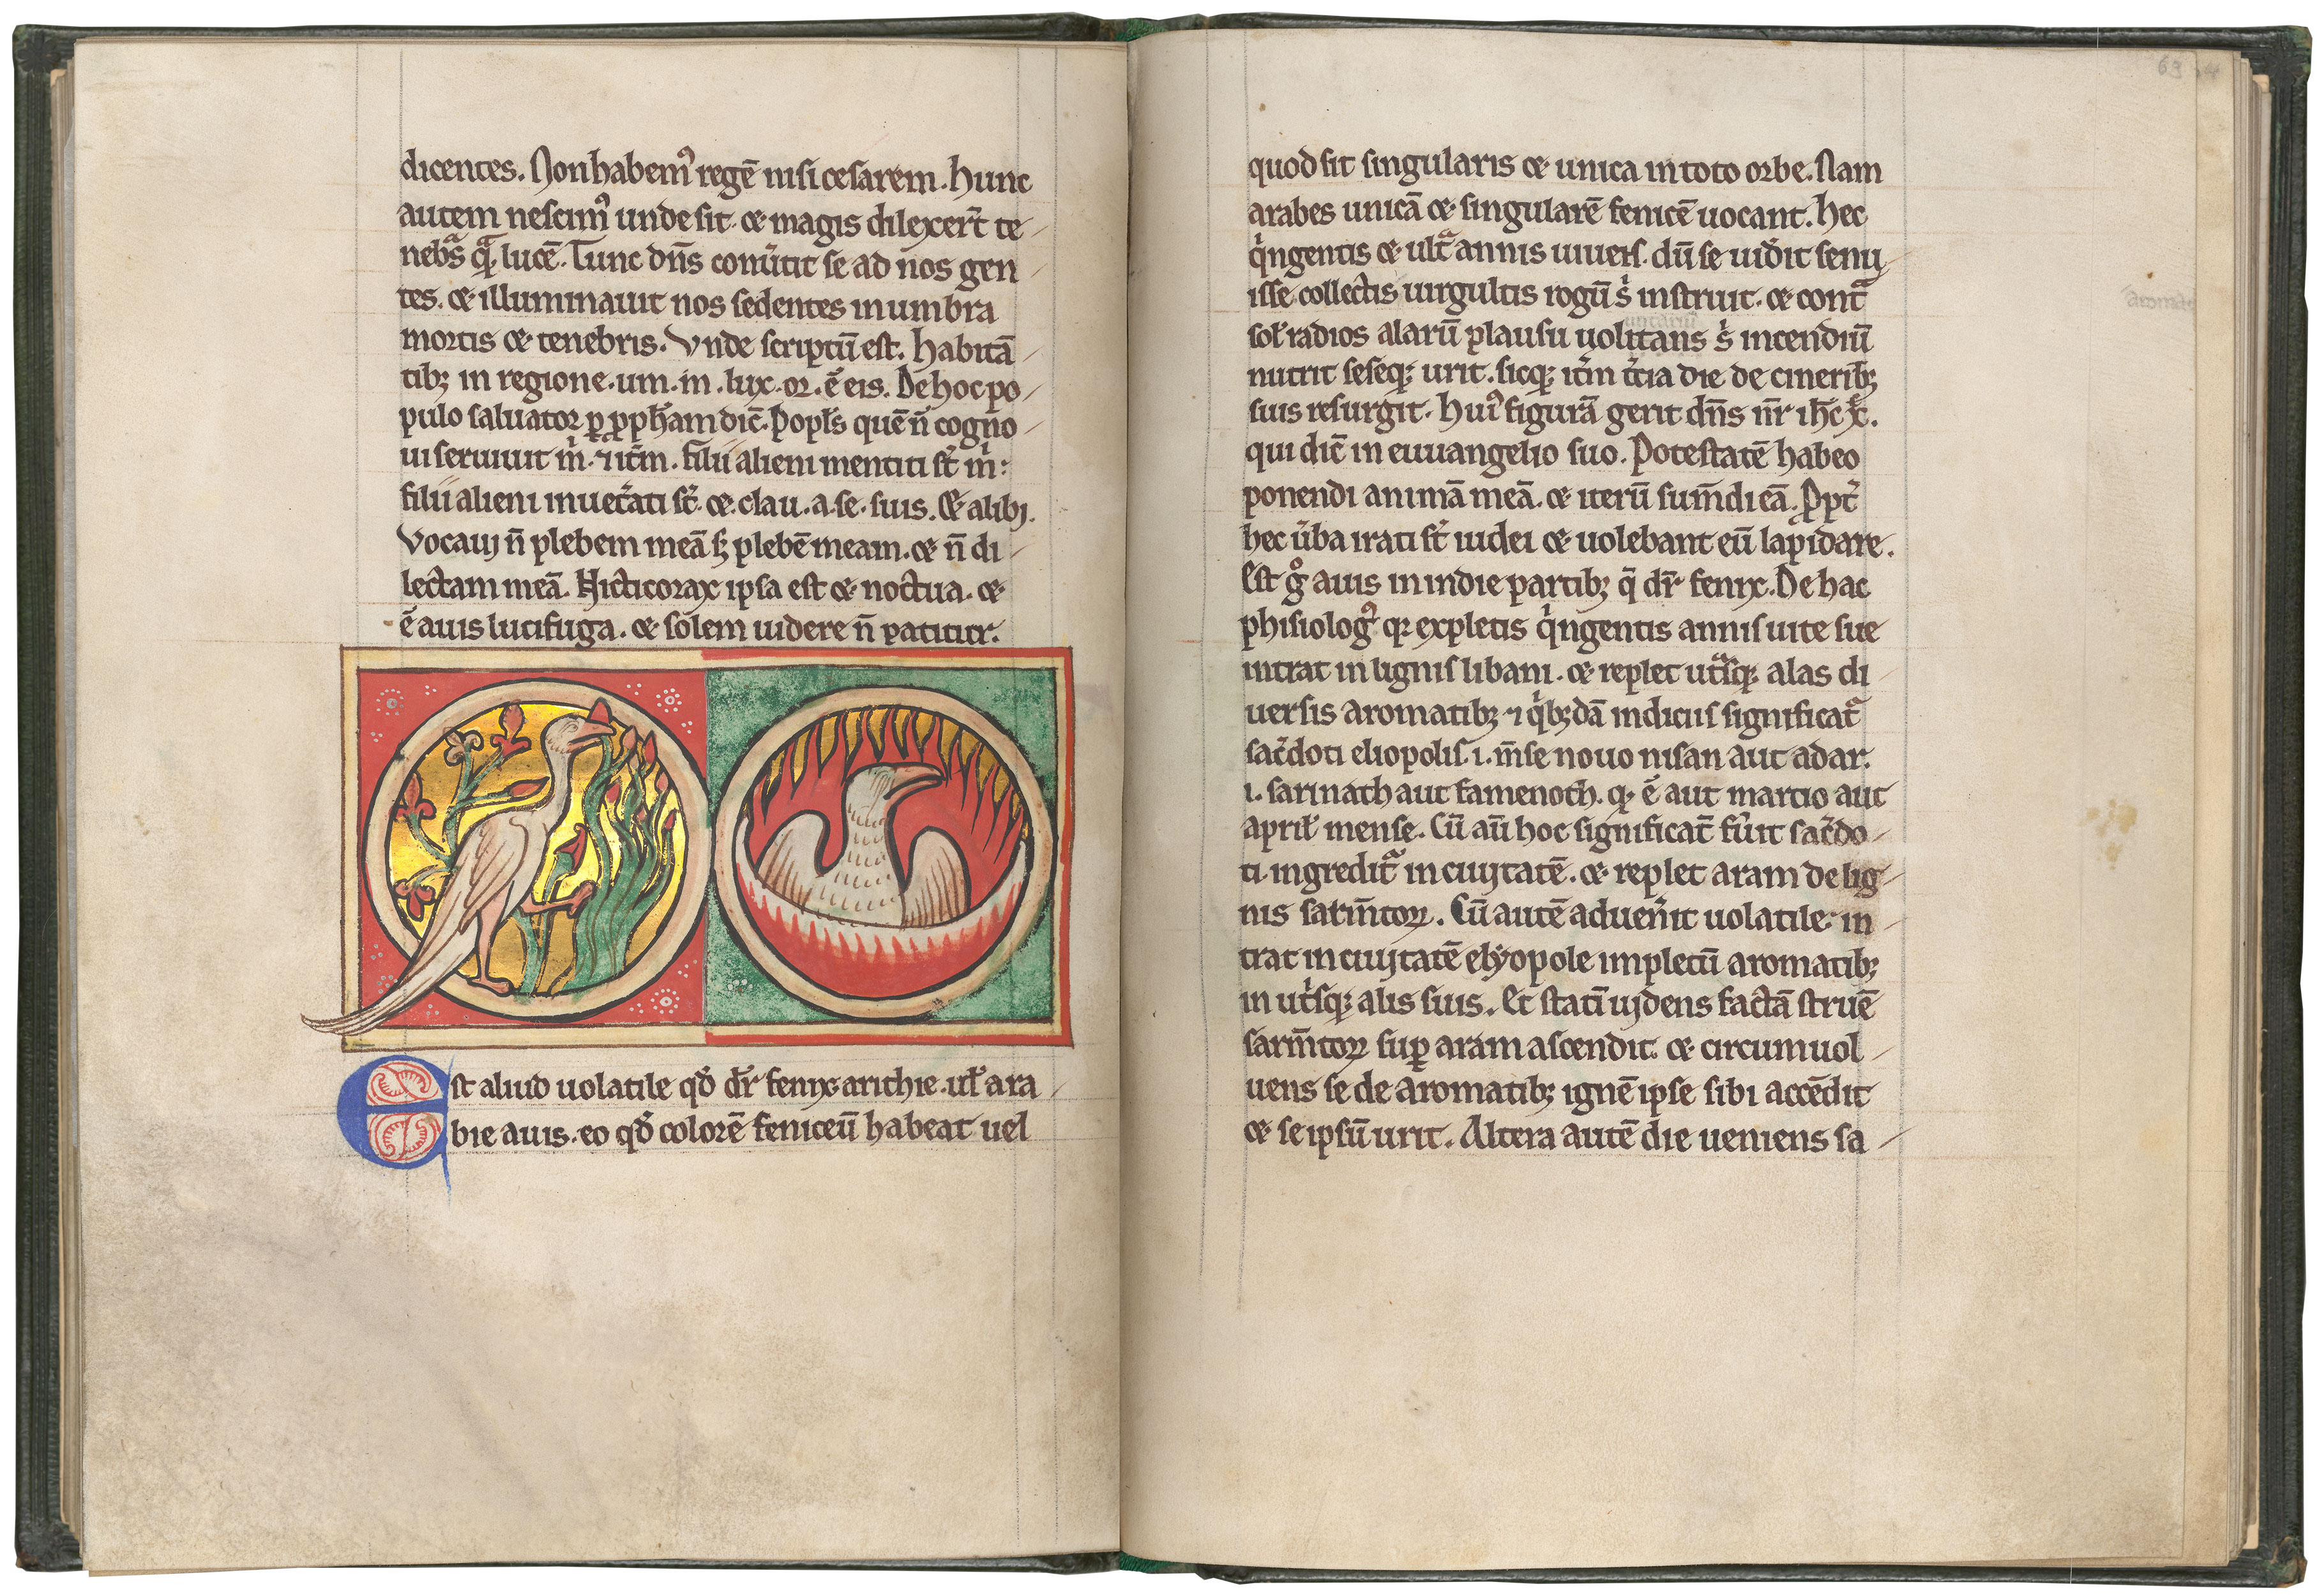 dicentes. Non habemꝰ regē nisi cesarem. hunc
autem nescimꝰ unde sit. & magis dilexer̄t te-
nebᵃs qᵃ̄ lucē. Tunc dn̄s conũtit se ad nos gen-
tes. & illuminauit nos sedentes in umbra
mortis & tenebris. Vnde scriptū est. habitā-
tibꝫ in regione. um. m. lux. or. ē eis. De hoc po-
pulo saluator ꝑ ꝓph̄am dic̄. Popl̄s quē n̄ cogno-
ui seruiuit m̍. ⁊ it̄m. filii alieni mentiti st̄ m̍:
filii alieni inuet̄ati st̄. & clau. a. se. suis. & alibi.
Vocaui n̄ plebem meā sꝫ plebē meam. & n̄ di-
lectam meā. Nicticorax ipsa est & noctua. &
ē auis lucifuga. & solem uidere n̄ patitur.
Est aliud uolatile qđ dr̄ fenyx arithie. ul̄ ara-
bie auis. eo qđ colorē feniceū habeat uel
quod sit singularis & unica in toto orbe. Nam
arabes unicā & singularē fenicē uocant. hec
qͥngentis & ultᵃ annis uiuens. dū se uid̄it senu-
isse collectis uirgultis rogū sͥ instruit. & contᵃ
sol̄ radios alarū plausu uolitans sͥ incendiū
nutrit seseqꝫ urit. sicqꝫ it̄m t̄cia die de cineribꝫ
suis resurgit. Huiꝰ figurā gerit dn̄s nr̄ ih̄c xc̄.
qui dic̄ in euuangelio suo. Potestatē habeo
ponendi animā meā. & iterū sum̄di eā. Ꝓpt̄
hec ũba irati st̄ iudei & uolebant eū lapidare.
Est gͦ auis in indie partibꝫ q̄ dr̄ fenyx. De hac
phisiologꝰ qꝛ expletis qͥngentis annis uite sue
intrat in lignis libani. & replet utᵃsqꝫ alas di-
uersis aromatibꝫ ⁊ qͥbꝫdā indiciis significatᵃ
sac̄doti eliopolis. i. m̄se nouo nisan aut adar.
i. sarinath aut famenoth. qꝫ ē aut martio aut
april̄ mense. Cū aū hoc significat̄ fũit sac̄do-
ti. ingreditᵃ in ciuitatē. & replet aram de lig-
nis sarm̄toꝝ. Cū autē aduen̄it uolatile. in-
trat in ciuitatē elyopole impletū aromatibꝫ
in utͥsqꝫ alis suis. Et stati uidens factā struē
sarm̄toꝝ suꝑ aram ascendit. & circumuol-
uens se de aromatibꝫ ignē ipse sibi accēdit
& se ipsū urit. Altera autē die ueniens sa-